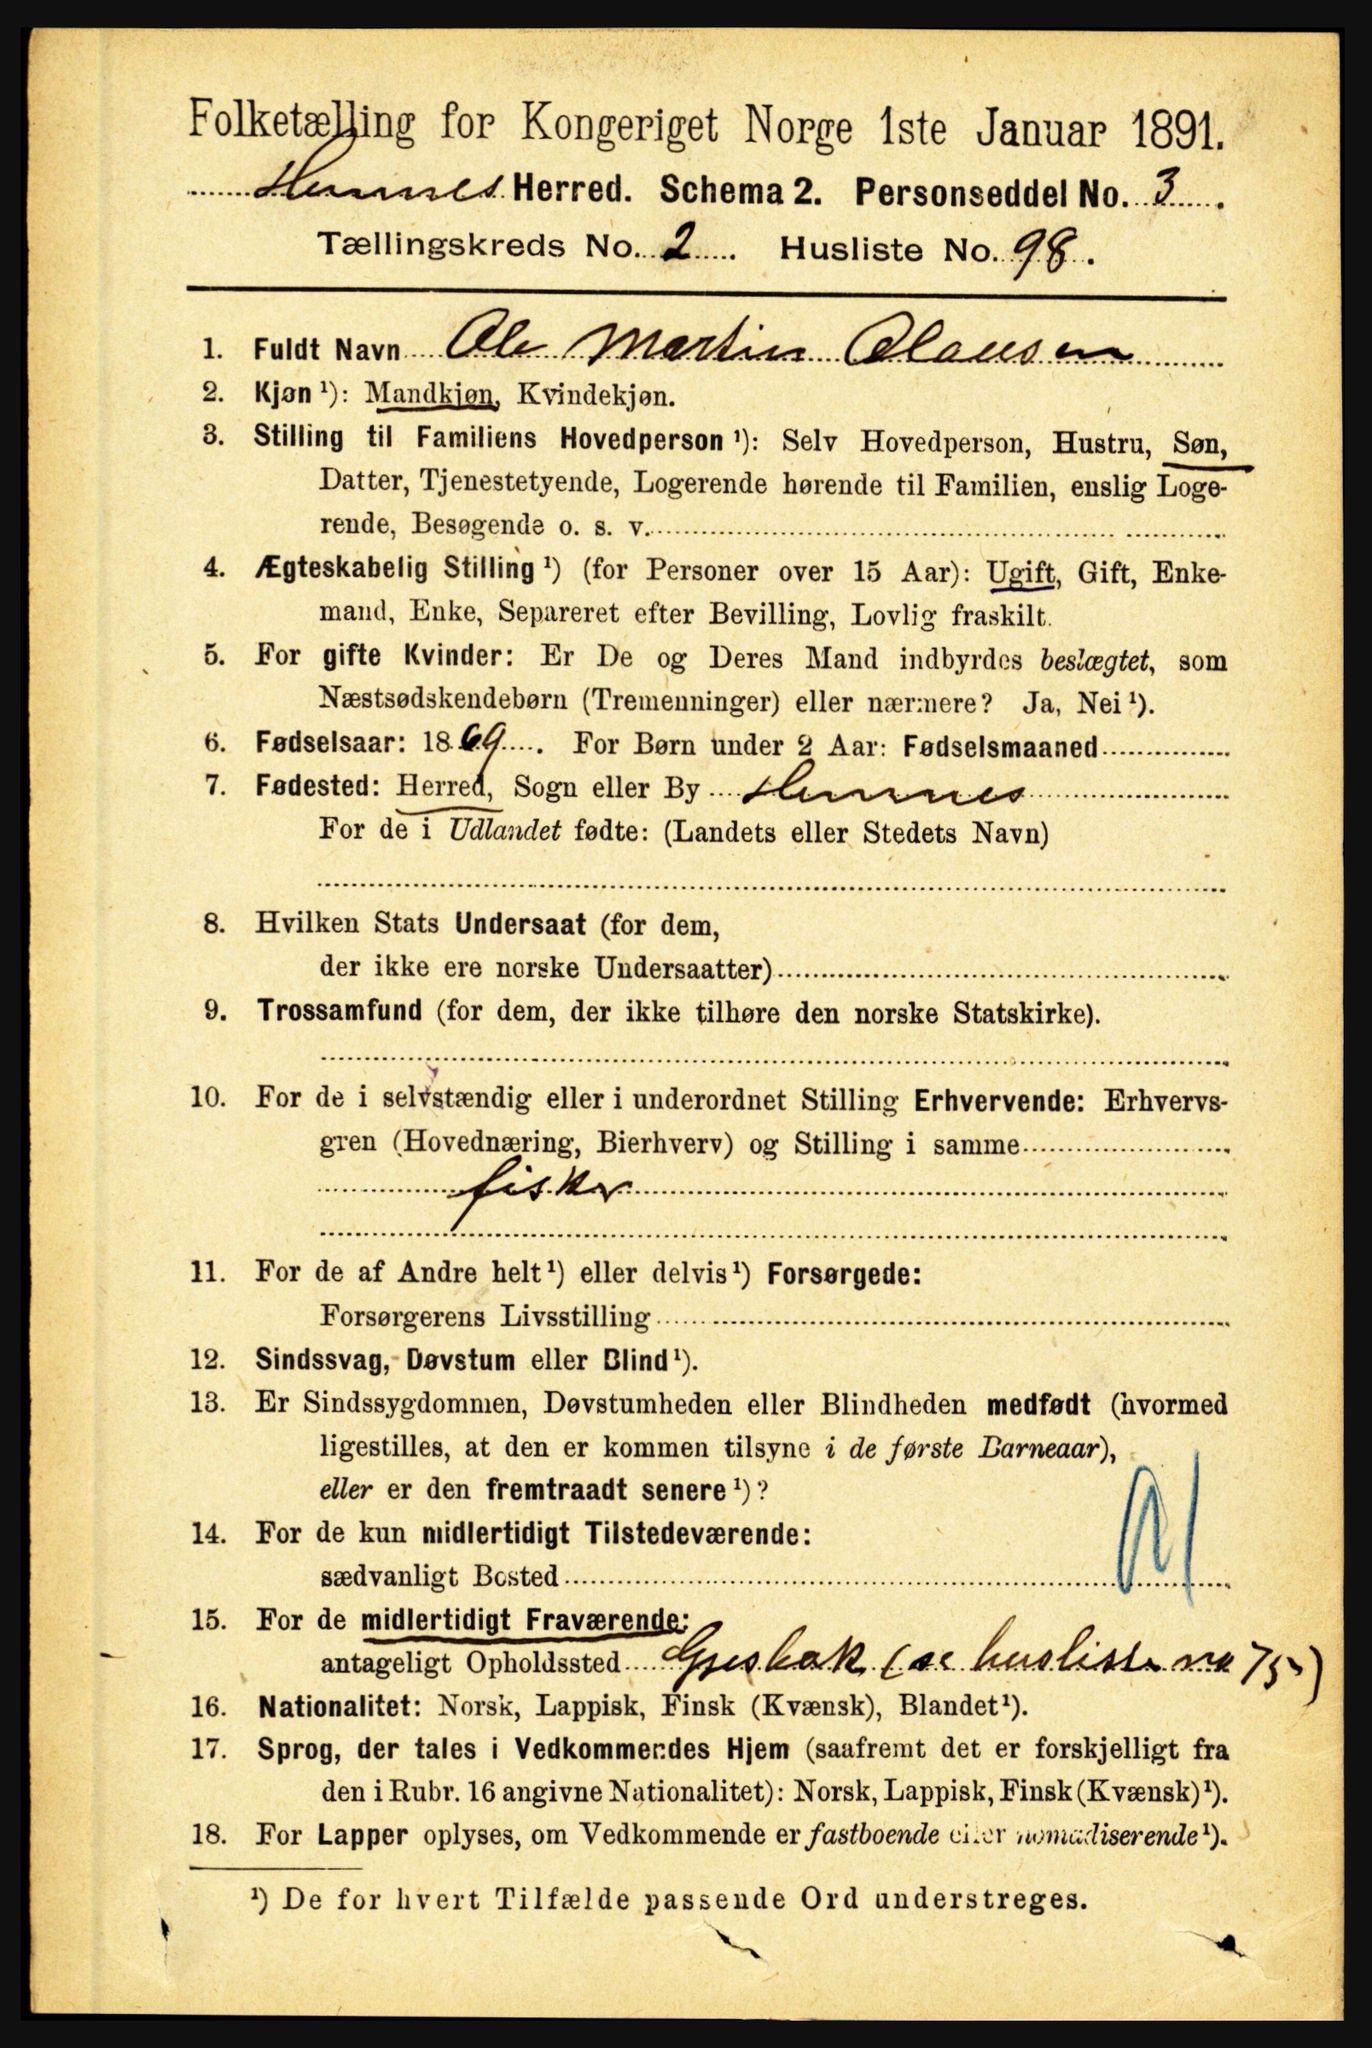 Folketælling for Kongeriget Norge 1ste Januar 1891.
Hemnes Herred. Schema 2. Personseddel No. 3.
Tællingskreds No. 2. Husliste No. 98.
1. Fuldt Navn Ole Martin Olausen
2. Kjøn ¹): Mandkjøn, Kvindekjøn.
3. Stilling til Familiens Hovedperson ¹): Selv Hovedperson, Hustru, Søn,
Datter, Tjenestetyende, Logerende hørende til Familien, enslig Loge-
rende, Besøgende o. s. v.
4. Ægteskabelig Stilling ¹) (for Personer over 15 Aar): Ugift, Gift, Enke-
mand, Enke, Separeret efter Bevilling, Lovlig fraskilt.
5. For gifte Kvinder: Er De og Deres Mand indbyrdes beslægtet, som
Næstsødskendebørn (Tremenninger) eller nærmere? Ja, Nei ¹).
6. Fødselsaar: 1869. For Børn under 2 Aar: Fødselsmaaned
7. Fødested: Herred, Sogn eller By Hemnes
For de i Udlandet fødte: (Landets eller Stedets Navn)
8. Hvilken Stats Undersaat (for dem,
der ikke ere norske Undersaatter)
9. Trossamfund (for dem, der ikke tilhøre den norske Statskirke).
10. For de i selvstændig eller i underordnet Stilling Erhvervende: Erhvervs-
gren (Hovednæring, Bierhverv) og Stilling i samme
fisker
11. For de af Andre helt ¹) eller delvis ¹) Forsørgede:
Forsørgerens Livsstilling
12. Sindssvag, Døvstum eller Blind ¹).
13. Er Sindssygdommen, Døvstumheden eller Blindheden medfødt (hvormed
ligestilles, at den er kommen tilsyne i de første Barneaar),
eller er den fremtraadt senere ¹)?
14. For de kun midlertidigt Tilstedeværende:
sædvanligt Bosted
15. For de midlertidigt Fraværende:
antageligt Opholdssted (se husliste no 75)
16. Nationalitet: Norsk, Lappisk, Finsk (Kvænsk), Blandet ¹).
17. Sprog, der tales i Vedkommendes Hjem (saafremt det er forskjelligt fra
den i Rubr. 16 angivne Nationalitet): Norsk, Lappisk, Finsk (Kvænsk) ¹).
18. For Lapper oplyses, om Vedkommende er fastboende eller nomadiserende ¹).
¹) De for hvert Tilfælde passende Ord understreges.